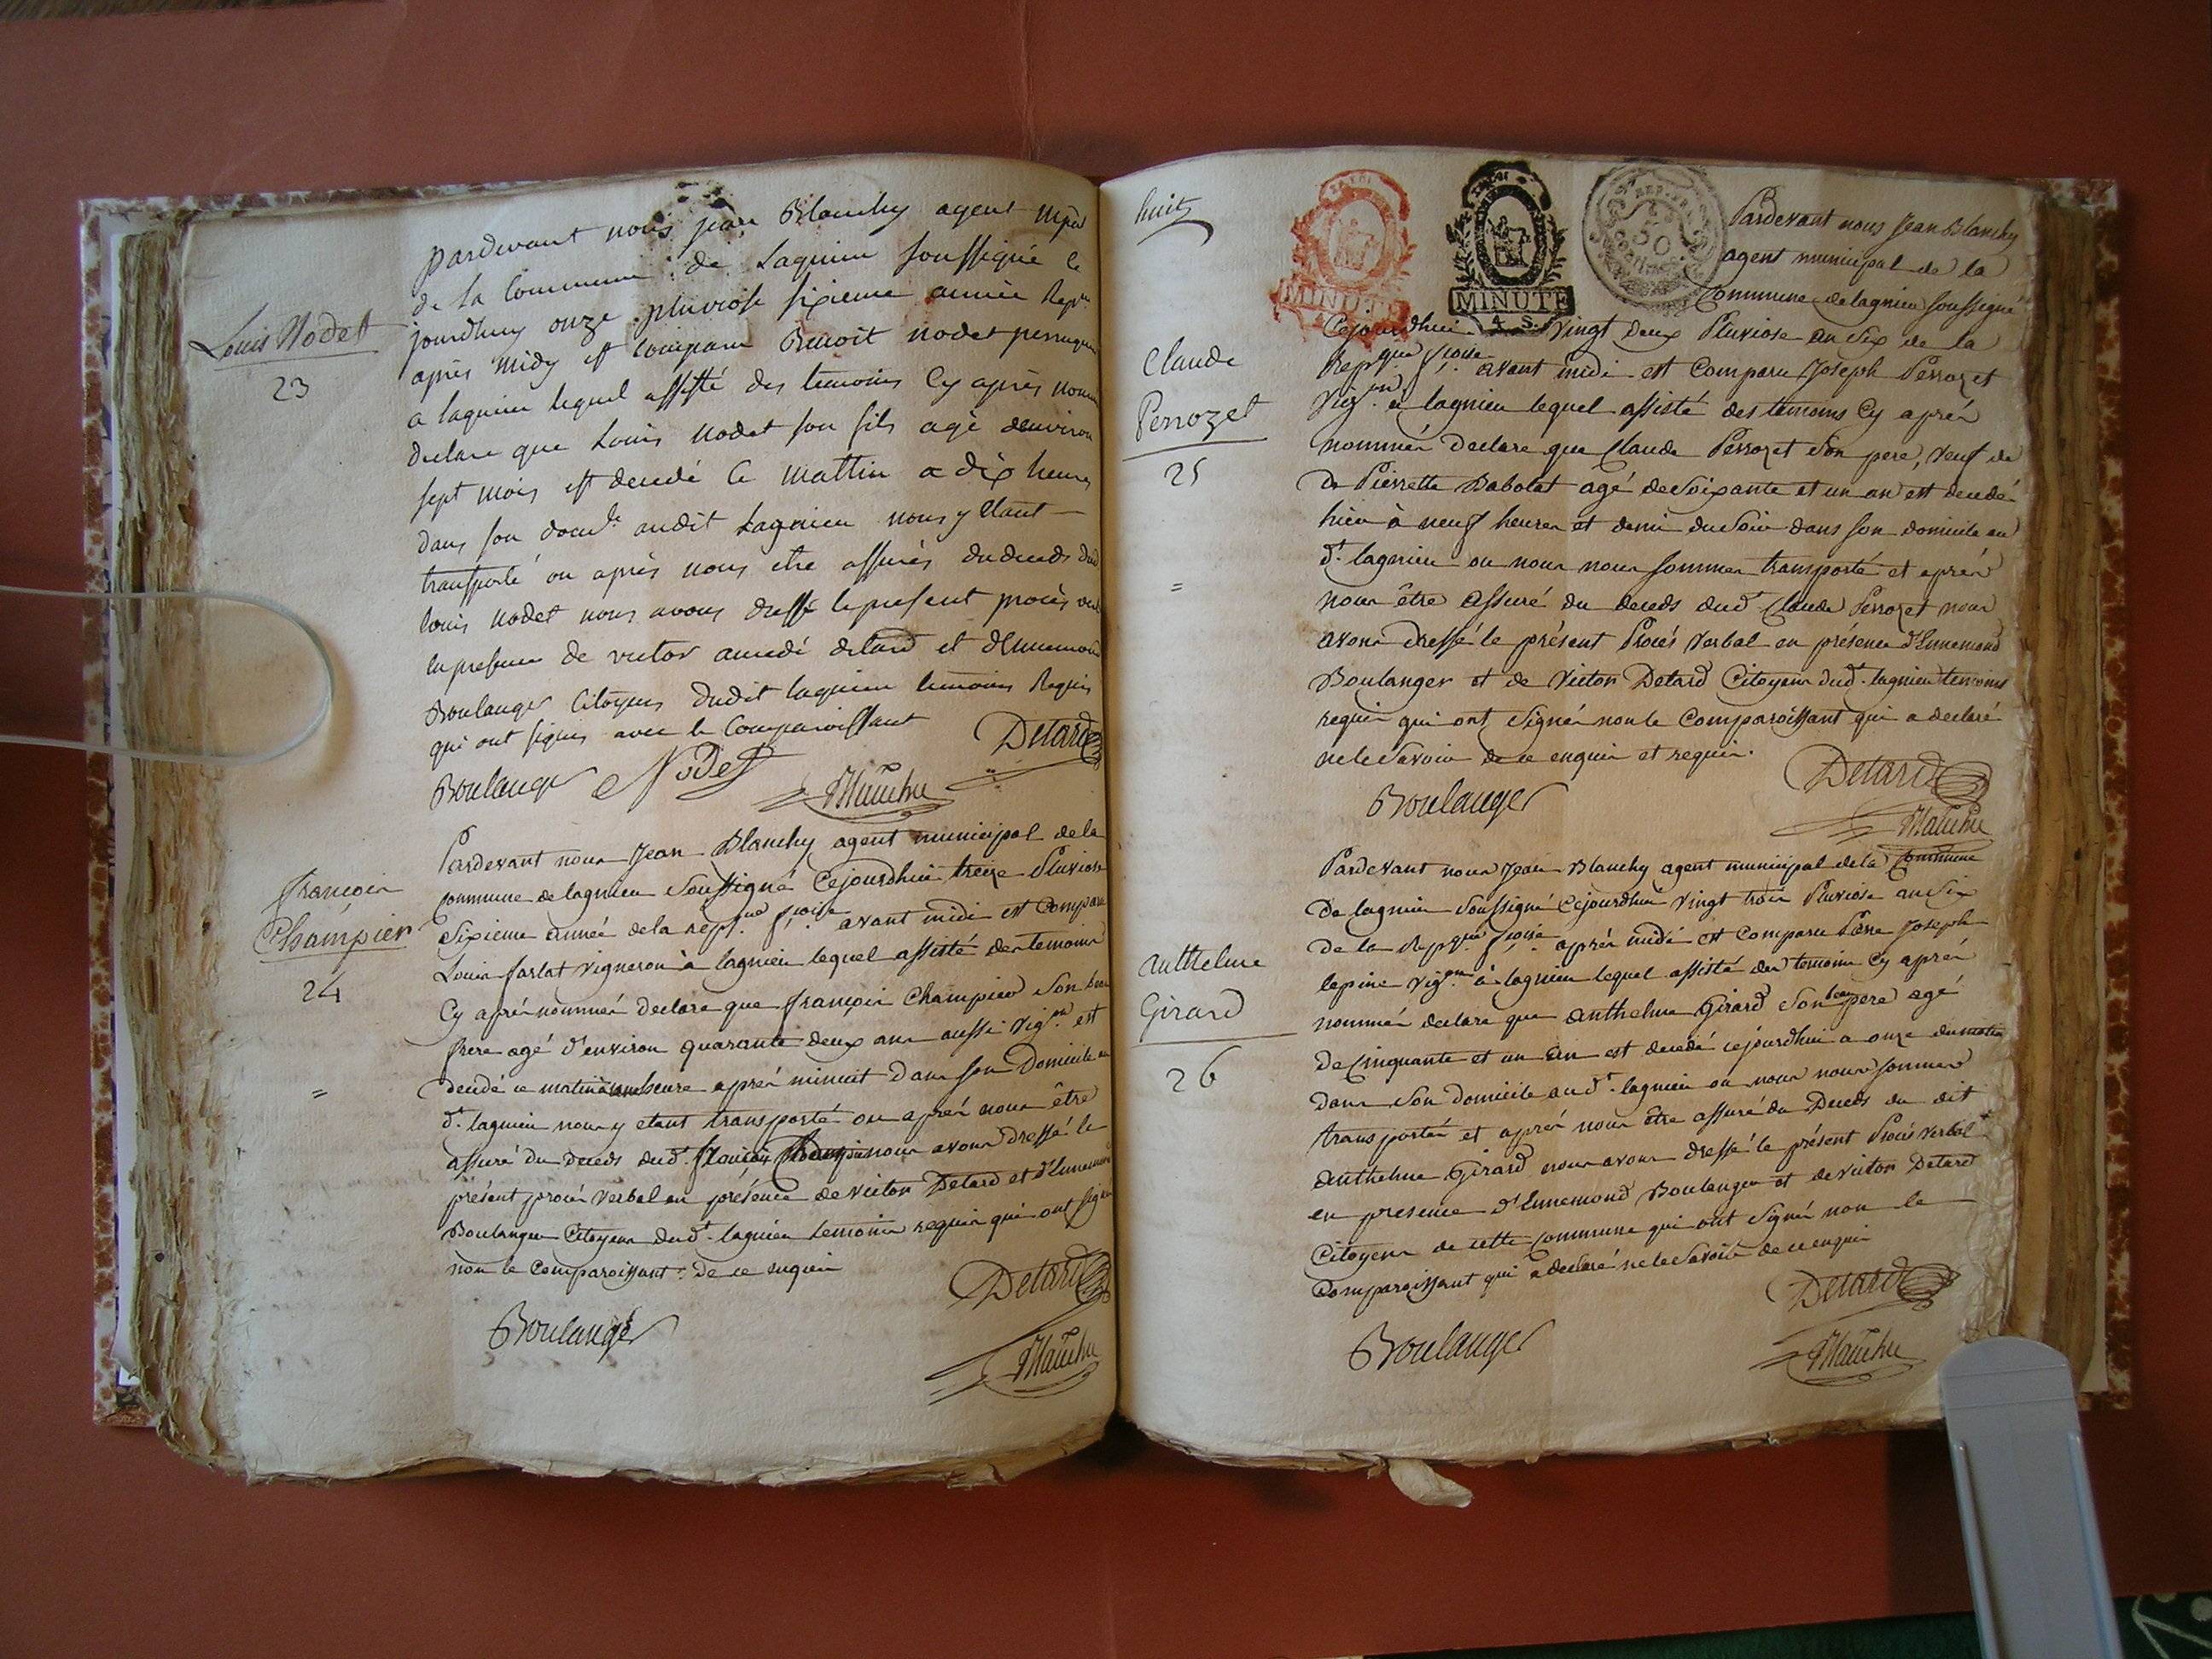 Louis Nodet
23
pardevant nous jean Blanchy agent mpal
de la Commune de Lagnieu soussigné ce
jourdhuy onze pluviose sixieme année Repne
après midy est comparu Benoit nodet perruquier
a lagnieu lequel assisté des temoins Cy après nommés
declare que Louis nodet son fils agé denviron
sept mois est decedé ce mattin a dix heures
dans son domle audit Lagnieu nous y étant
transporté ou après nous etre assurés du deceds dud
louis nodet nous avons dressé le present procès verbal
en presence de victor amedé detard et d'Ennemond
Boulanger Citoyens dudit lagnieu temoins Requis
qui ont signés avec le Comparoissant
Detard
Boulanger Nodet
Blanchy
françois
Champier
24
=
Pardevant nous Jean Blanchy agent municipal de la
commune de lagnieu Soussigné Cejourdhui treize Pluviose
Sixieme année de la repque fçoise avant midi est comparu
Louis farlat vigneron à lagnieu lequel assisté des temoins
Cy après nommés declare que françois Champier son beau
frere agé d'environ quarante deux ans aussi vigon est
decedé ce matin à une heure après minuit dans son Domicile au
dt lagnieu nous y etant transporté ou après nous être
assuré du deceds dud. françois Champier nous avons dressé le
présent procès verbal en présence de victor Detard et d'Ennemond
Boulanger Citoyens dudt lagnieu temoins requis qui ont signés
non le Comparoissant de ce enquis
Detard
Boulanger
Blanchy
huit
MINUTE
4 S.
MINUTE
4 S.
50
Pardevant nous Jean Blanchy
agent municipal de la
Commune de lagnieu soussigné
Claude
Perrozet
25
=
Cejourdhui vingt deux Pluviose an Six de la
Repque fçoise avant midi est Comparu Joseph Perrozet
vigon à lagnieu lequel assisté des temoins Cy après
nommés declare que Claude Perrozet son pere, veuf de
De Pierrette Babolat agé de Soixante et un an est decedé
hier à neuf heures et demi du Soir dans son domicile au
dt lagnieu ou nous nous sommes transporté et après
nous être assuré du deceds dudt Claude Perrozet nous
avons dressé le présent Procès Verbal en présence d'Ennemond
Boulanger et de Victor Detard Citoyens dudt lagnieu temoins
requis qui ont Signés non le Comparoissant qui a declaré
ne le Savoir de ce enquis et requis.
Detard
Boulanger
Blanchy
Anthelme
Girard
26
Pardevant nous Jean Blanchy agent municipal de la Commune
De lagnieu Soussigné Cejourdhui vingt trois Pluviose an Six
de la Repque fçoise après midi est Comparu Pierre Joseph
lepine vigon à lagnieu lequel assisté des temoins Cy après
nommés declare que Anthelme Girard Son beau pere agé
de Cinquante et un an est decedé cejourdhui a onze du matin
dans Son Domicile audt lagnieu ou nous nous sommes
transportés et après nous être assuré du Deceds du dit
Anthelme Girard nous avons dressé le présent Procès verbal
en presence d'Ennemond Boulanger et de Victor Detard
Citoyens de cette Commune qui ont Signés non le
Comparoissant qui a declaré ne le Savoir de ce enquis
Detard
Boulanger
Blanchy